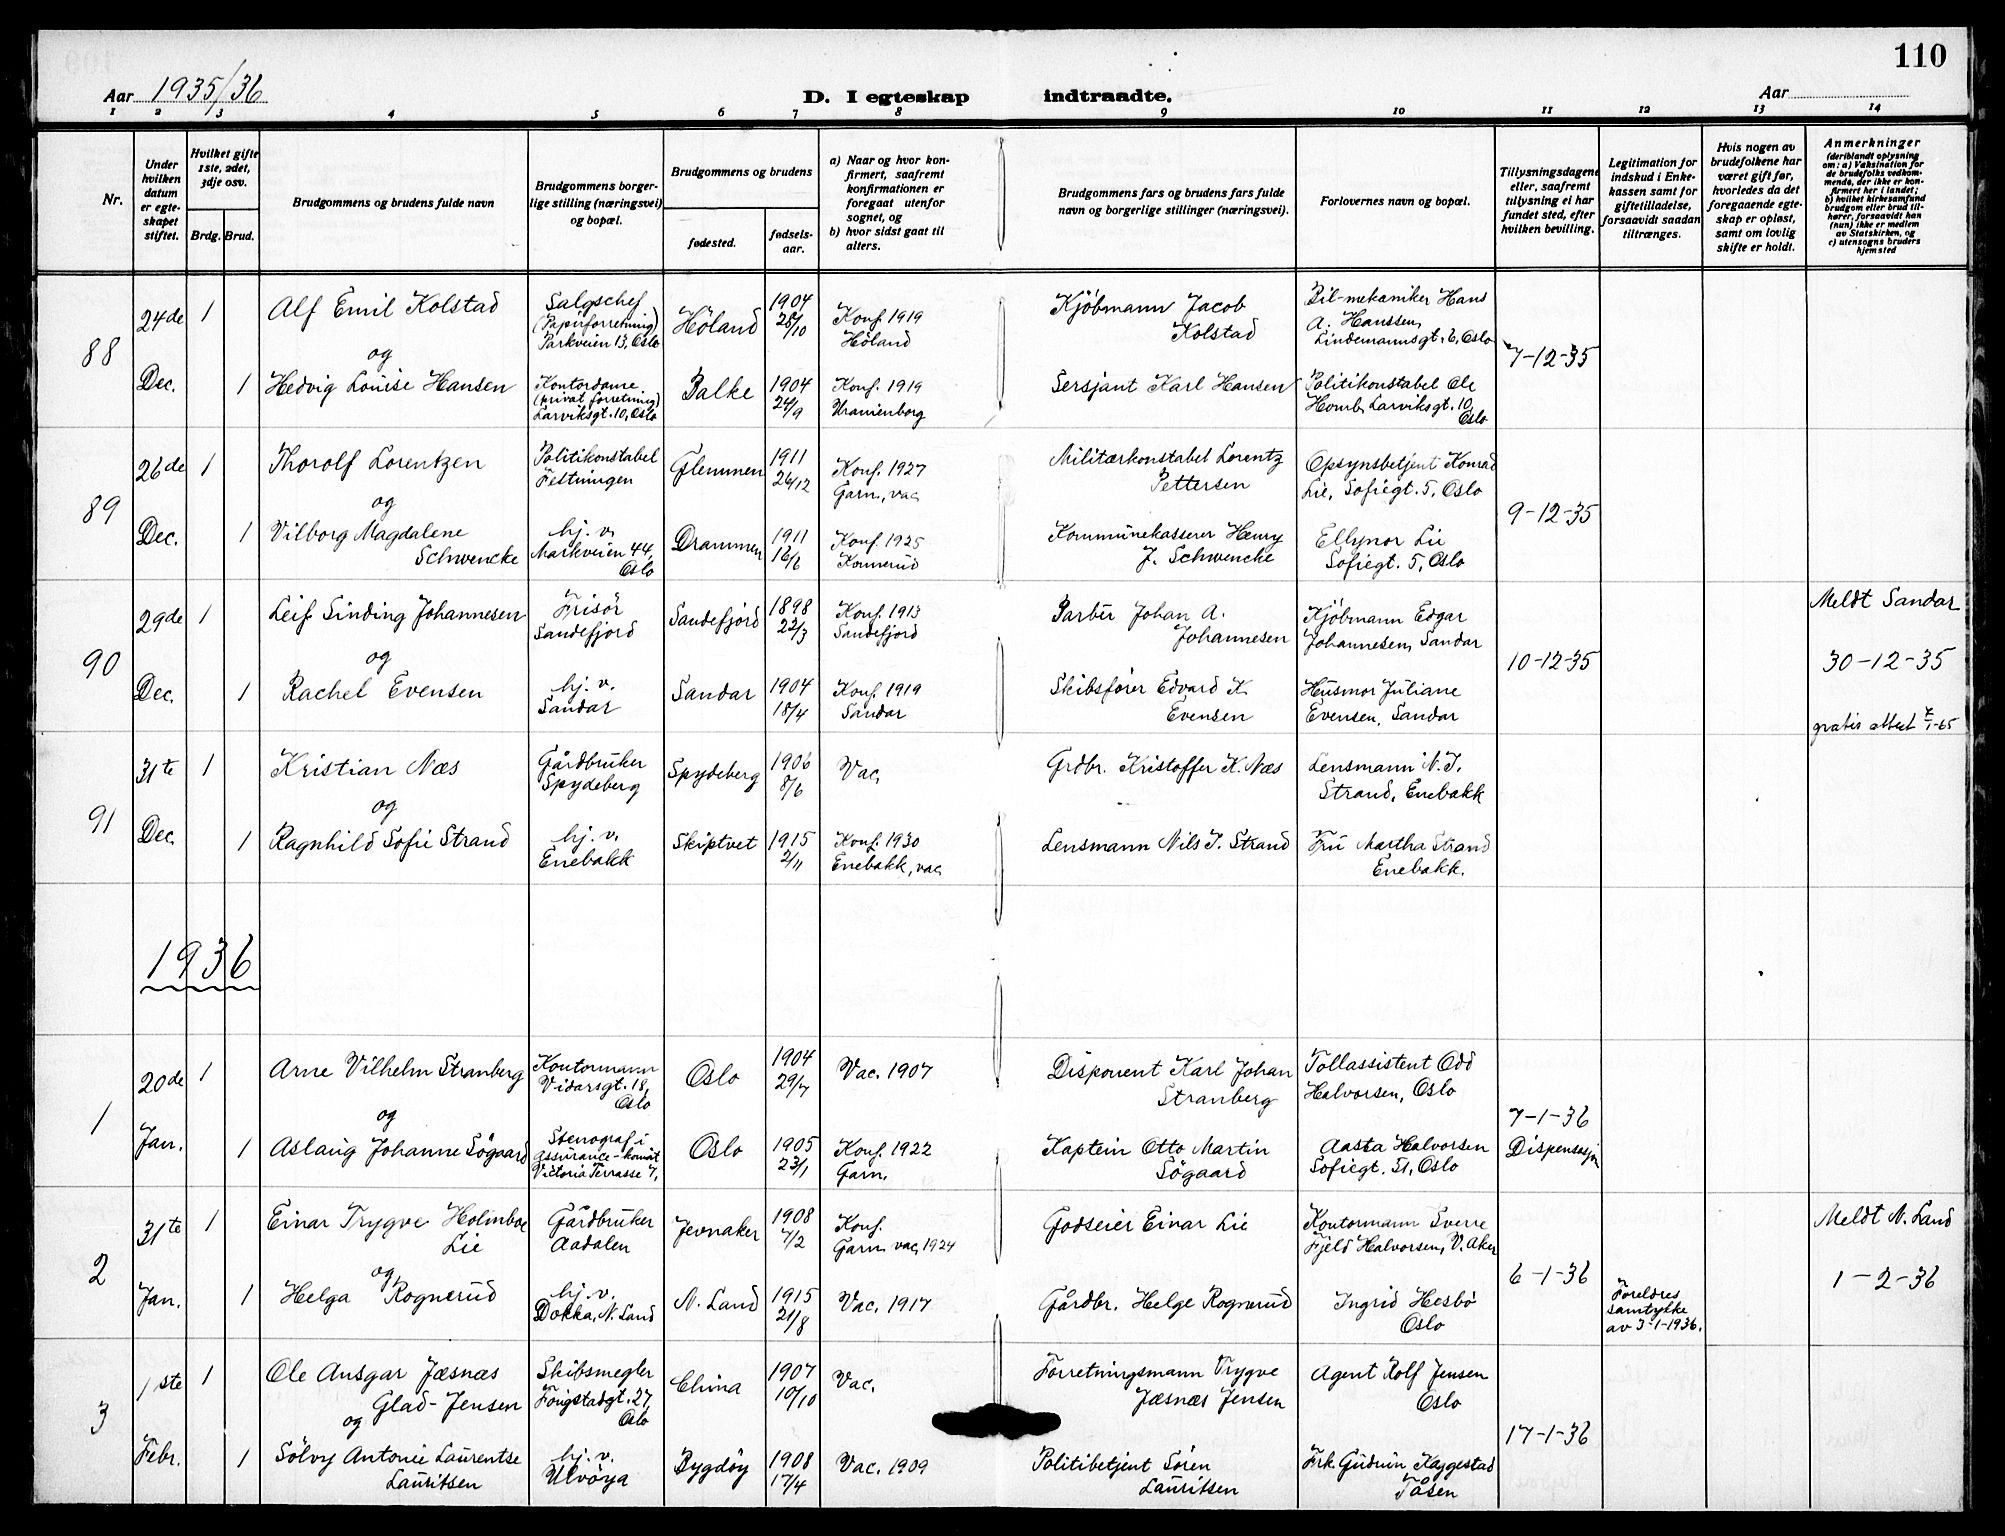 110
Aar 1935/36
D. I egteskap indtraadte.
Aar
1 2 3 4 5 6 7 8 9 10 11 12 13 14
Nr.
Under hvilken datum er egteskapet stiftet.
Hvilket gifte 1ste, 2det, 3dje osv.
Brdg. Brud.
Brudgommens og brudens fulde navn
Brudgommens borgerlige stilling (næringsvei) og bopæl.
Brudgommens og brudens
fødested.
fødselsaar.
a) Naar og hvor konfirmert, saafremt konfirmationen er foregaat utenfor sognet, og
b) hvor sidst gaat til alters.
Brudgommens fars og brudens fars fulde navn og borgerlige stillinger (næringsvei).
Forlovernes navn og bopæl.
Tillysningsdagene eller, saafremt tillysning ei har fundet sted, efter hvilken bevilling.
Legitimation for indskud i Enkekassen samt for giftetilladelse, forsaavidt saadan tiltrænges.
Hvis nogen av brudefolkene har været gift før, hvorledes da det foregaaende egteskap er opløst, samt om lovlig skifte er holdt.
Anmerkninger
(deriblandt oplysning om: a) Vaksination for de brudefolks vedkommende, der ikke er konfirmert her i landet; b) hvilket kirkesamfund brudgom eller brud tilhører, forsaavidt han (hun) ikke er medlem av Statskirken, og c) utensogns bruders hjemsted
88
24de Dec.
1
Alf Emil Kolstad
Salgschef (Papirforretning) Parkveien 13, Oslo
Höland
1904 28/10
Konf. 1919 Höland
Kjöbmann Jacob Kolstad
Bil-mekaniker Hans A. Hanssen, Lindemannsgt. 6, Oslo
og
1
Hedvig Louise Hansen
Kontordame (privat forretning) Larviksgt. 10, Oslo
Balke
1904 24/9
Konf. 1919 Uranienborg
Sersjant Karl Hansen
Politikonstabel Ole Homb, Larviksgt. 10, Oslo
7-12-35
89
26de Dec.
1
Thorolf Lorentzen
Politikonstabel Festningen
Glemmen
1911 26/12
Konf. 1927 Garn, vac
Militærkonstabel Lorentz Pettersen
Opsynsbetjent Konrad Lie, Sofiegt. 5, Oslo
og
1
Vilborg Magdalene Schwencke
hj. v. Markveien 44, Oslo
Drammen
1911 16/6
Konf. 1925 Konnerud
Kommünekasserer Henry J. Schwencke
Ellynor Lie Sofiegt. 5, Oslo
9-12-35
90
29de Dec.
1
Leif Sinding Johannesen
Frisör Sandefjord
Sandefjord
1898 22/3
Konf. 1913 Sandefjord
Barbér Johan A. Johannesen
Kjöbmann Edgar Johannesen, Sandar
og
1
Rachel Evensen
hj. v. Sandar
Sandar
1904 18/4
Konf. 1919 Sandar
Skibsförer Edvard K. Evensen
Hüsmor Juliane Evensen, Sandar
10-12-35
Meldt Sandar
30-12-35
gratis attest
91
31te Dec.
1
Kristian Næs
Gårdbrüker Spydeberg
Spydeberg
1906 8/6
Vac.
Grdbr. Kristoffer K. Næs
Lensmann N. J. Strand, Enebakk
og
1
Ragnhild Sofie Strand
hj. v. Enebakk
Skiptvet
1915 2/11
Konf. 1930 Enebakk, vac
Lensmann Nils J. Strand
Frü Martha Strand Enebakk.
1936
1
20de Jan.
1
Arne Vilhelm Stranberg
Kontormann Vidarsgt. 18, Oslo
Oslo
1904 29/7
Vac. 1907
Disponent Karl Johan Stranberg
Tollassistent Odd Halvorsen, Oslo
og
1
Aslaug Johanne Sögaard
Stenograf i Assürance-komit Victoria Terrasse 7,
Oslo
1905 23/1
Konf. 1922 Garn.
Kaptein Otto Martin Sögaard
Aasta Halvorsen Sofiegt. 51, Oslo
7-1-36 Dispensasjon
2
31te Jan.
1
Einar Trygve Holmboe Lie
Gårdbrüker Aadalen
Jevnaker
1908 7/2
Konf. Garn. vac. 1924
Godseier Einar Lie
Kontormann Sverre Fjeld Halvorsen, V. Aker
og
1
Helga Rognerüd
hj. v. Dokka, N. Land
N. Land
1915 21/8
Vac. 1917
Gårdbr. Helge Rognerüd
Ingrid Hesbö Oslo
6-1-36
Foreldres samtykke av 3-1-1936.
Meldt N. Land
1-2-36
3
1ste Febr.
1
Ole Ansgar Jæsnæs Glad-Jensen
Skibsmegler Fougstadgt. 27, Oslo
China
1907 10/10
Vac.
Forretningsmann Trygve Jæsnæs Jensen
Agent Rolf Jensen Oslo
og
1
Sölvy Antonie Laurentse Lauritsen
hj. v. Ulvöya
Bygdöy
1908 17/4
Vac. 1909
Politibetjent Sören Lauritsen
Frk. Güdrün Kaggestad Tåsen
17-1-36